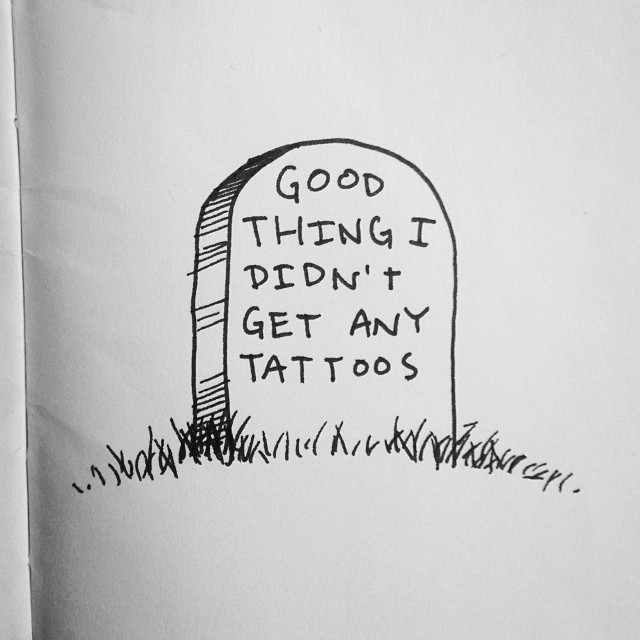 GOOD
THING I
DIDN't
GET ANY
TATTOOS